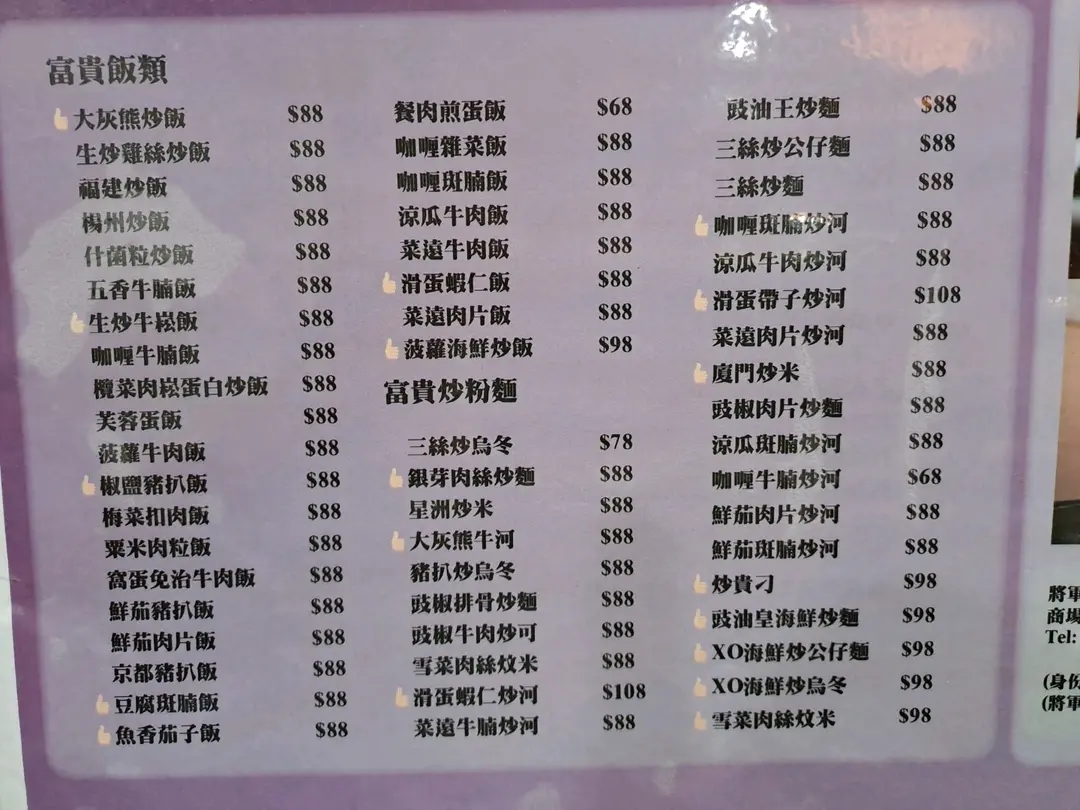 富貴飯類
大灰熊炒飯 $88
生炒雞絲炒飯 $88
福建炒飯 $88
楊州炒飯 $88
什菌粒炒飯 $88
五香牛腩飯 $88
生炒牛崧飯 $88
咖喱牛腩飯 $88
欖菜肉崧蛋白炒飯 $88
芙蓉蛋飯 $88
菠蘿牛肉飯 $88
椒鹽豬扒飯 $88
梅菜扣肉飯 $88
粟米肉粒飯 $88
窩蛋免治牛肉飯 $88
鮮茄豬扒飯 $88
鮮茄肉片飯 $88
京都豬扒飯 $88
豆腐斑腩飯 $88
魚香茄子飯 $88
餐肉煎蛋飯 $68
咖喱雜菜飯 $88
咖喱斑腩飯 $88
涼瓜牛肉飯 $88
菜遠牛肉飯 $88
滑蛋蝦仁飯 $88
菜遠肉片飯 $88
菠蘿海鮮炒飯 $98
富貴炒粉麵
三絲炒烏冬 $78
銀芽肉絲炒麵 $88
星洲炒米 $88
大灰熊牛河 $88
豬扒炒烏冬 $88
豉椒排骨炒麵 $88
豉椒牛肉炒可 $88
雪菜肉絲炆米 $88
滑蛋蝦仁炒河 $108
菜遠牛腩炒河 $88
豉油王炒麵 $88
三絲炒公仔麵 $88
三絲炒麵 $88
咖喱斑腩炒河 $88
涼瓜牛肉炒河 $88
滑蛋帶子炒河 $108
菜遠肉片炒河 $88
廈門炒米 $88
豉椒肉片炒麵 $88
涼瓜斑腩炒河 $88
咖喱牛腩炒河 $68
鮮茄肉片炒河 $88
鮮茄斑腩炒河 $88
炒貴刁 $98
豉油皇海鮮炒麵 $98
XO海鮮炒公仔麵 $98
XO海鮮炒烏冬 $98
雪菜肉絲炆米 $98
將軍
商場
Tel:
(身份
(將軍